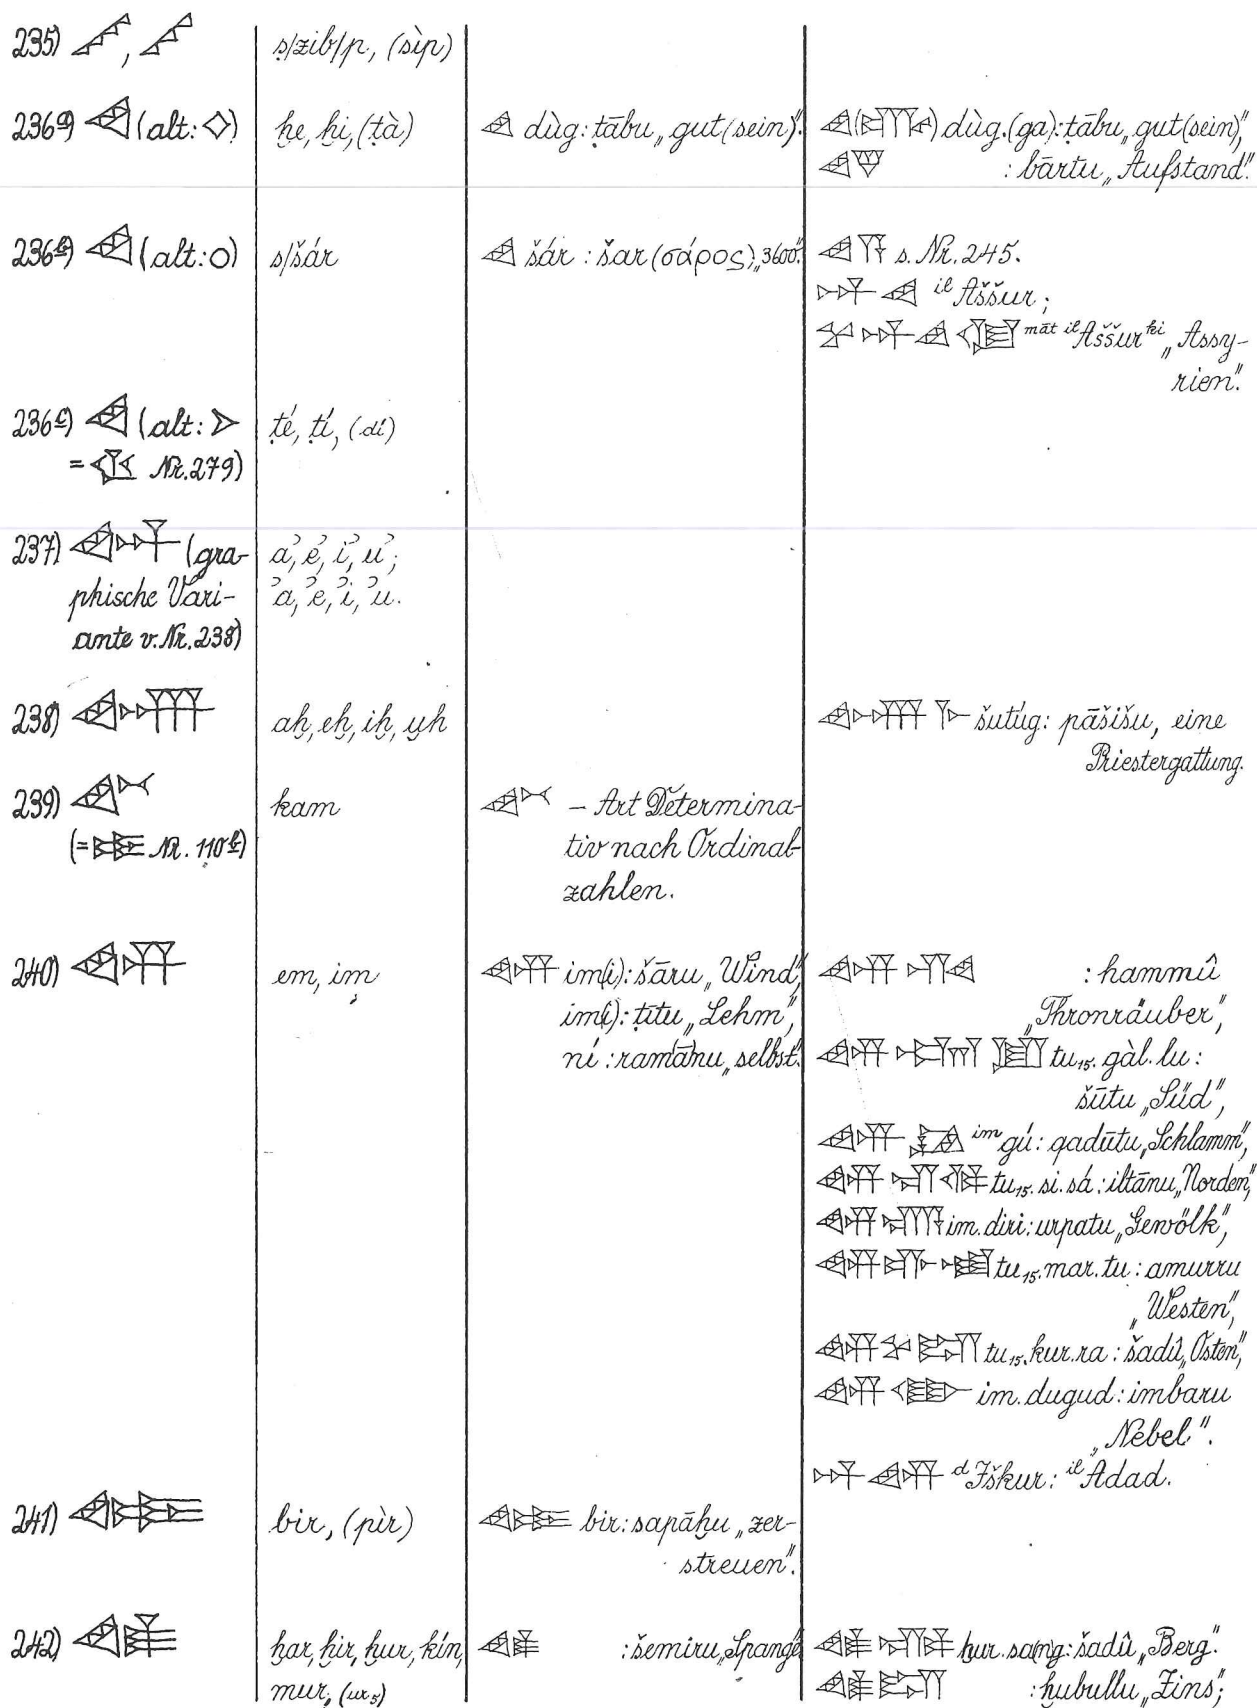 235) 𒍦, 𒍦 s/zib/p, (sìp)
236a) 𒄭 (alt: ◇) ḫe, ḫi, (ṭà) 𒄭 dùg: ṭābu „gut(sein)". 𒄭(𒂵) dùg.(ga): ṭābu „gut(sein)",
𒄭𒃻 : bārtu „Aufstand".
236b) 𒄭 (alt: O) s/šár 𒄭 šár : šar (σάρος) „3600". 𒄭𒀀 s. Nr. 245.
𒀭𒄭 il Aššur;
𒆳𒀭𒄭𒆠 māt il Aššur ki „Assy-
rien".
236c) 𒄭 (alt: ᐳ ṭé, ṭí, (dí)
= 𒋾 Nr. 279)
237) (gra- a', e', i', u';
phische Vari- 'a, 'e, 'i, 'u.
ante v. Nr. 238)
238) 𒄴 aḫ, eḫ, iḫ, uḫ 𒄴𒈨 šutúg: pāšišu, eine
Priestergattung.
239) 𒄰 kam 𒄰 – Art Determina-
(= Nr. 110b) tiv nach Ordinal-
zahlen.
240) 𒅎 em, im 𒅎 im(i): šāru „Wind", 𒅎𒄭 : hammû
im(i): ṭīṭu „Lehm", „Thronräuber",
ní : ramānu „selbst". 𒅎𒃲𒇻 tu₁₅.gàl.lu :
šūtu „Süd",
𒅎𒄘 im gú : qadūtu „Schlamm",
𒅎𒋛𒁲 tu₁₅.si.sá : iltānu „Norden",
𒅎𒋛𒀀 im.diri : urpatu „Gewölk",
𒅎𒈥𒌅 tu₁₅.mar.tu : amurru
„Westen",
𒅎𒆳𒊏 tu₁₅.kur.ra : šadû „Osten",
𒅎𒂂 im.dugud : imbaru
„Nebel".
𒀭𒅎 d Iškur: il Adad.
241) 𒂔 bir, (pìr) 𒂔 bir: sapāḫu „zer-
streuen".
242) 𒄯 ḫar, ḫir, ḫur, kín, 𒄯 : šemiru „Spange" 𒄯𒊕 ḫur.sag: šadû „Berg".
mur, (ur₅) 𒄯𒊏 : ḫubullu „Zins";